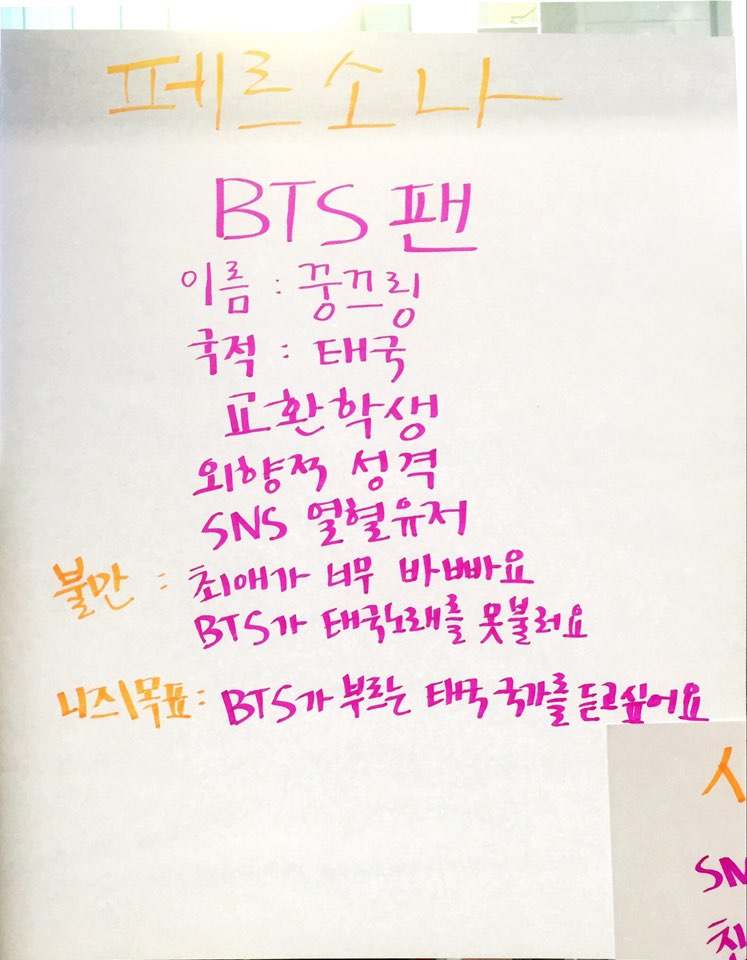 페르소나
BTS 팬
이름 : 꿍끄링
국적 : 태국
교환학생
외향적 성격
SNS 열혈유저
불만 : 최애가 너무 바빠요
BTS가 태국노래를 못불러요
니즈/목표 : BTS가 부르는 태국 국가를 듣고싶어요